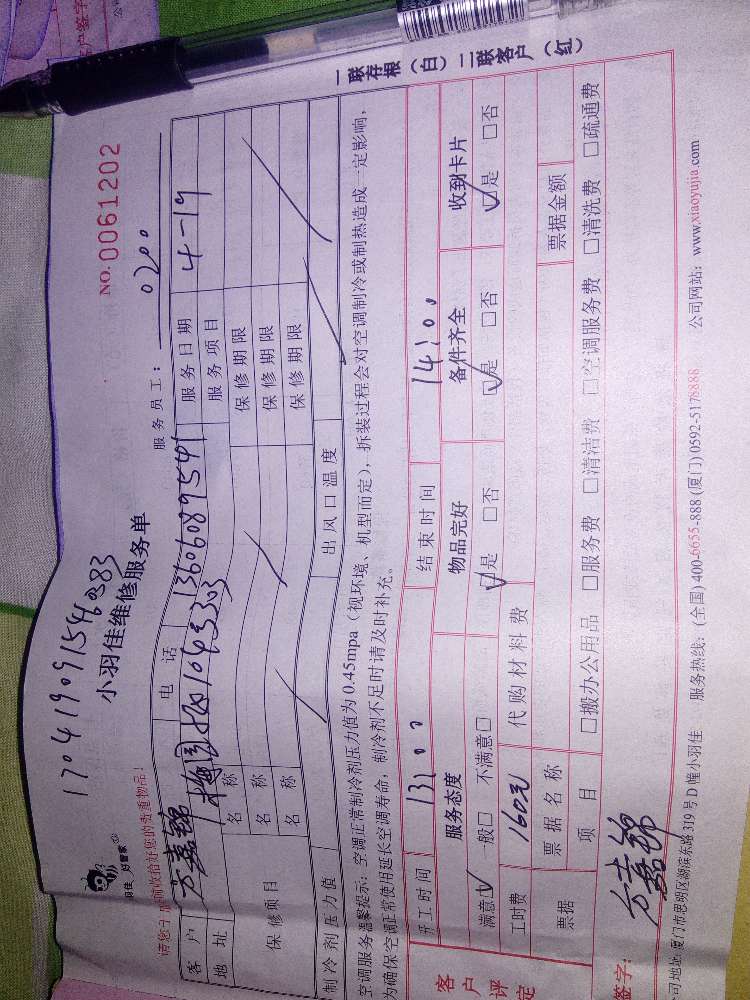 170419091546383
小羽佳维修服务单
NO.0061202
羽佳 好管家
服务员工: 0200
客户 方嘉锦 电话 13606089541 服务日期 4-19
地址 服务项目
保修项目 名称 保修期限
名称 保修期限
名称 保修期限
制冷剂压力值 出风口温度
空调服务温馨提示:空调正常制冷剂压力值为0.45mpa(视环境、机型而定),拆装过程会对空调制冷或制热造成一定影响,
为确保空调正常使用延长空调寿命,制冷剂不足时请及时补充。
开工时间 13:00 结束时间 14:00
客户评定 服务态度 物品完好 备件齐全 收到卡片
满意☑ 一般□ 不满意□ ☑是 □否 ☑是 □否 ☑是 □否
工时费 160元 代购材料费
票据 票据名称 票据金额
项目 □搬办公用品 □服务费 □清洁费 □空调服务费 □清洗费 □疏通费
签字: 方嘉锦
司地址:厦门市思明区湖滨东路319号D幢小羽佳 服务热线:(全国)400-6655-888 (厦门)0592-5178888 公司网站:www.xiaoyujia.com
一联存根(白)二联客户(红)
户签字